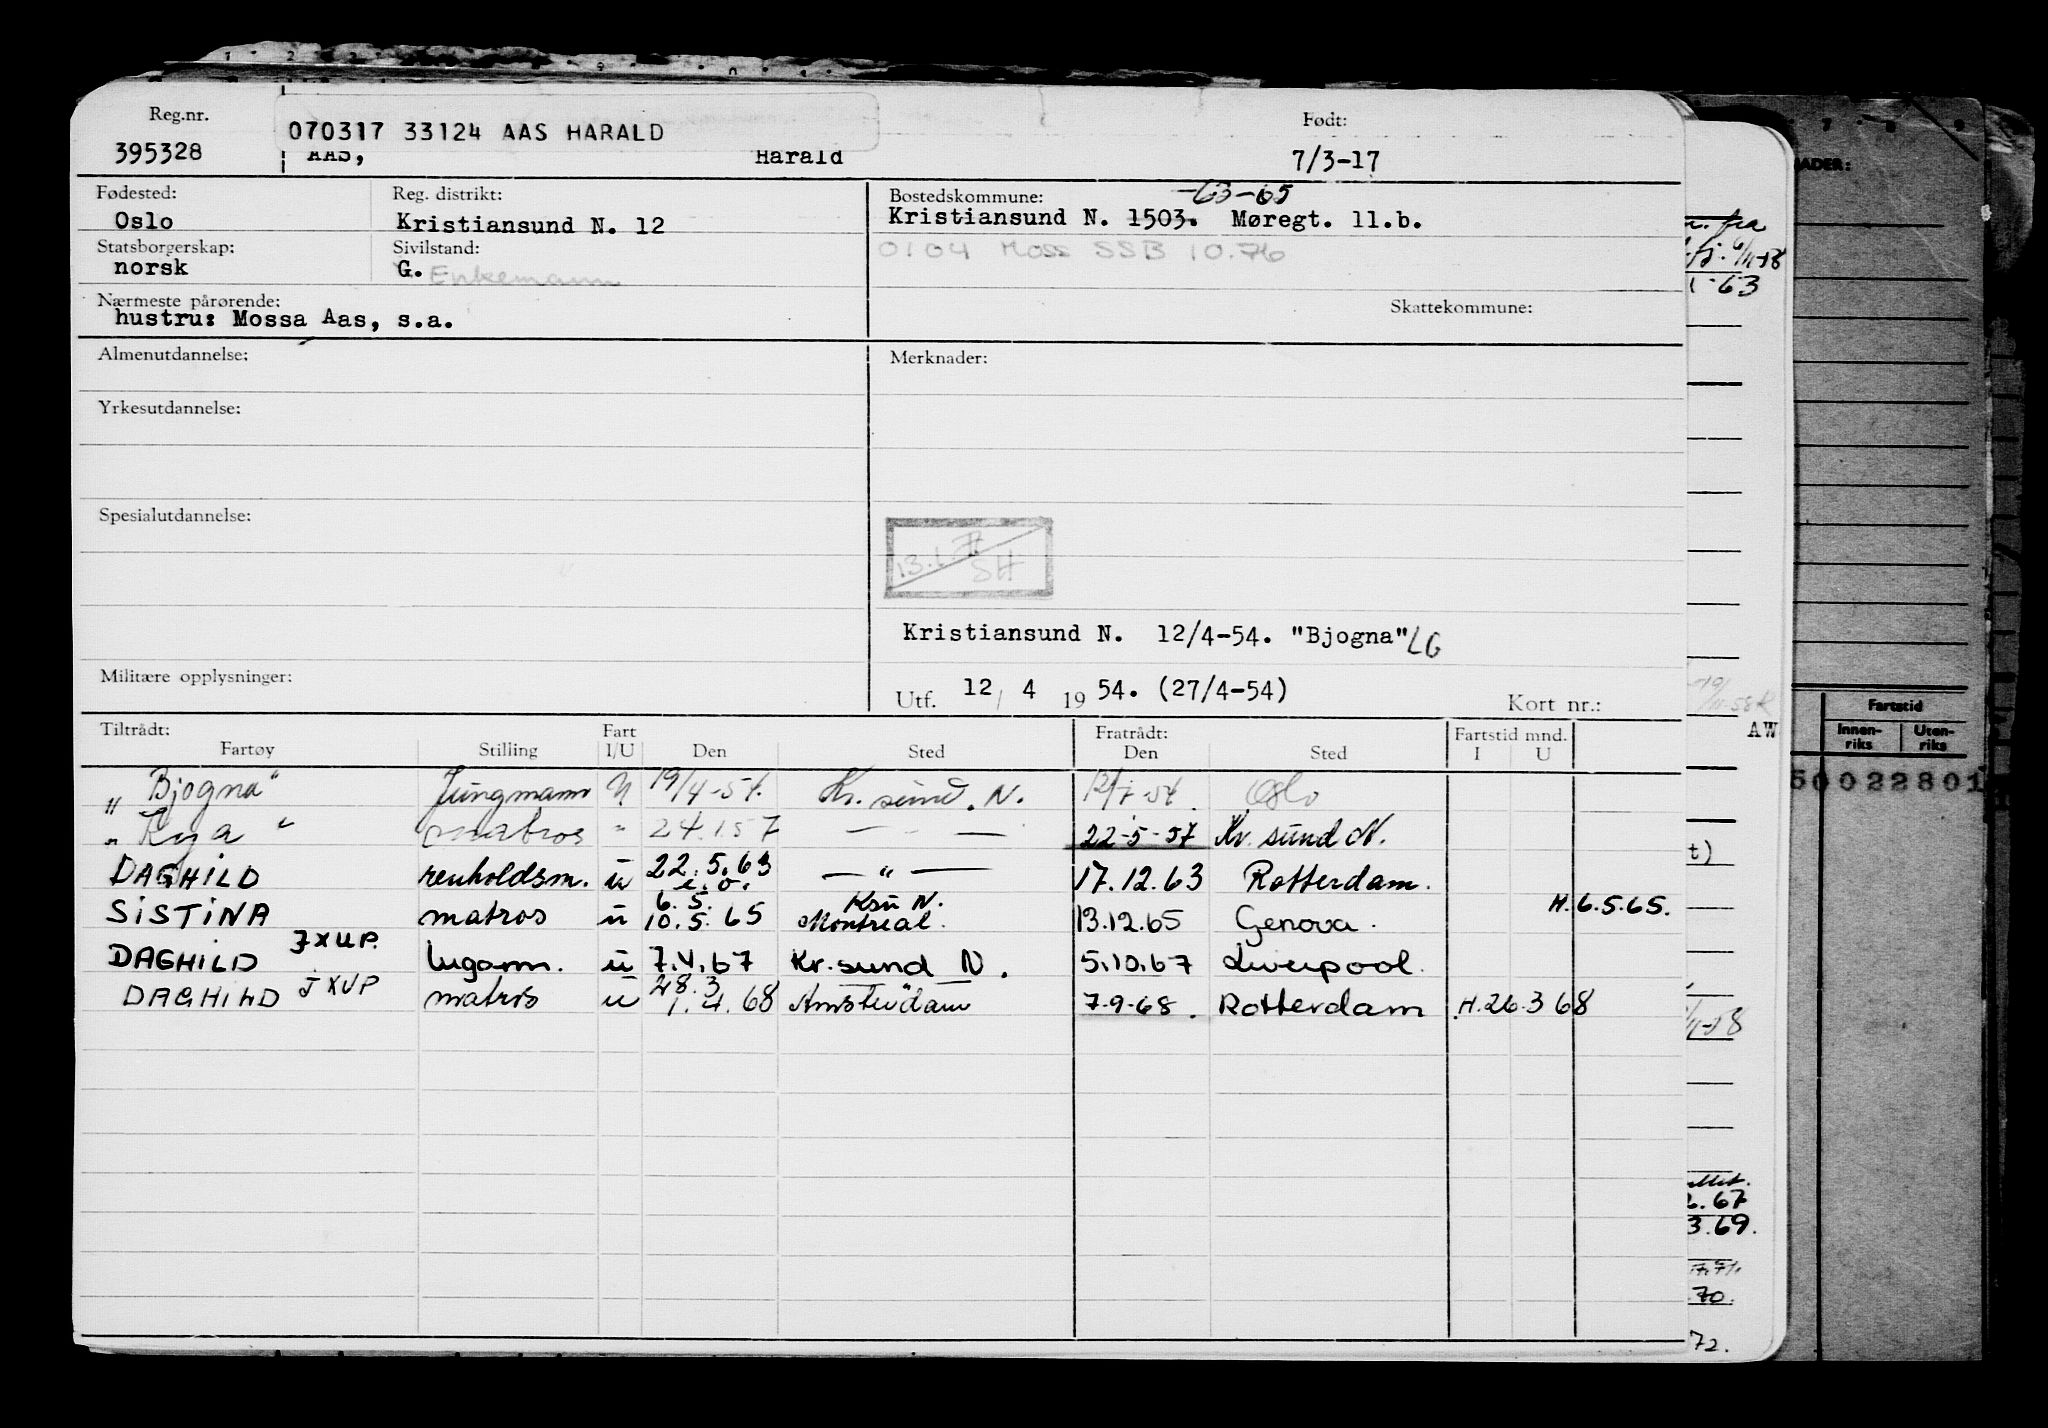 Reg.nr.
395328
070317 33124 AAS HARALD
AAS, Harald
Født:
7/3-17
Fødested:
Oslo
Reg. distrikt:
Kristiansund N. 12
Bostedskommune: -63-65
Kristiansund N. 1503. Møregt. 11.b.
0104 Moss SSB 10.76
Statsborgerskap:
norsk
Sivilstand:
G. Enkemann
Nærmeste pårørende:
hustru: Mossa Aas, s.a.
Skattekommune:
Almenutdannelse:
Merknader:
Yrkesutdannelse:
Spesialutdannelse:
SH
Kristiansund N. 12/4-54. "Bjogna" LG
Militære opplysninger:
Utf. 12/ 4 1954. (27/4-54)
Kort nr.:
Tiltrådt: Fart Fratrådt: Fartstid mnd.
Fartøy Stilling I/U Den Sted Den Sted I U
"Bjogna" Jungmann U 19/4-54. Kr. sund. N. 12/7-54. Oslo
"Rya" matros " 24.1 57 — " — 22-5-57 Kr. sund N.
DAGHILD renholdsm. u 22.5.63 — " — 17.12.63 Rotterdam.
e.o.
6.5. Ksu N. H. 6.5.65.
SISTINA matros u 10.5.65 Montreal. 13.12.65 Genova.
DAGHILD JXUP. lugarm. u 7.4.67 Kr. sund N. 5.10.67 Liverpool.
28.3
DAGHILD JXUP matros u 1.4.68 Amsterdam 7-9-68. Rotterdam H.26.3 68
. fra
-63
AW
t)
.67
3.69.
.70.
72.
Fartstid
Innen-riks
Uten-riks
50022801